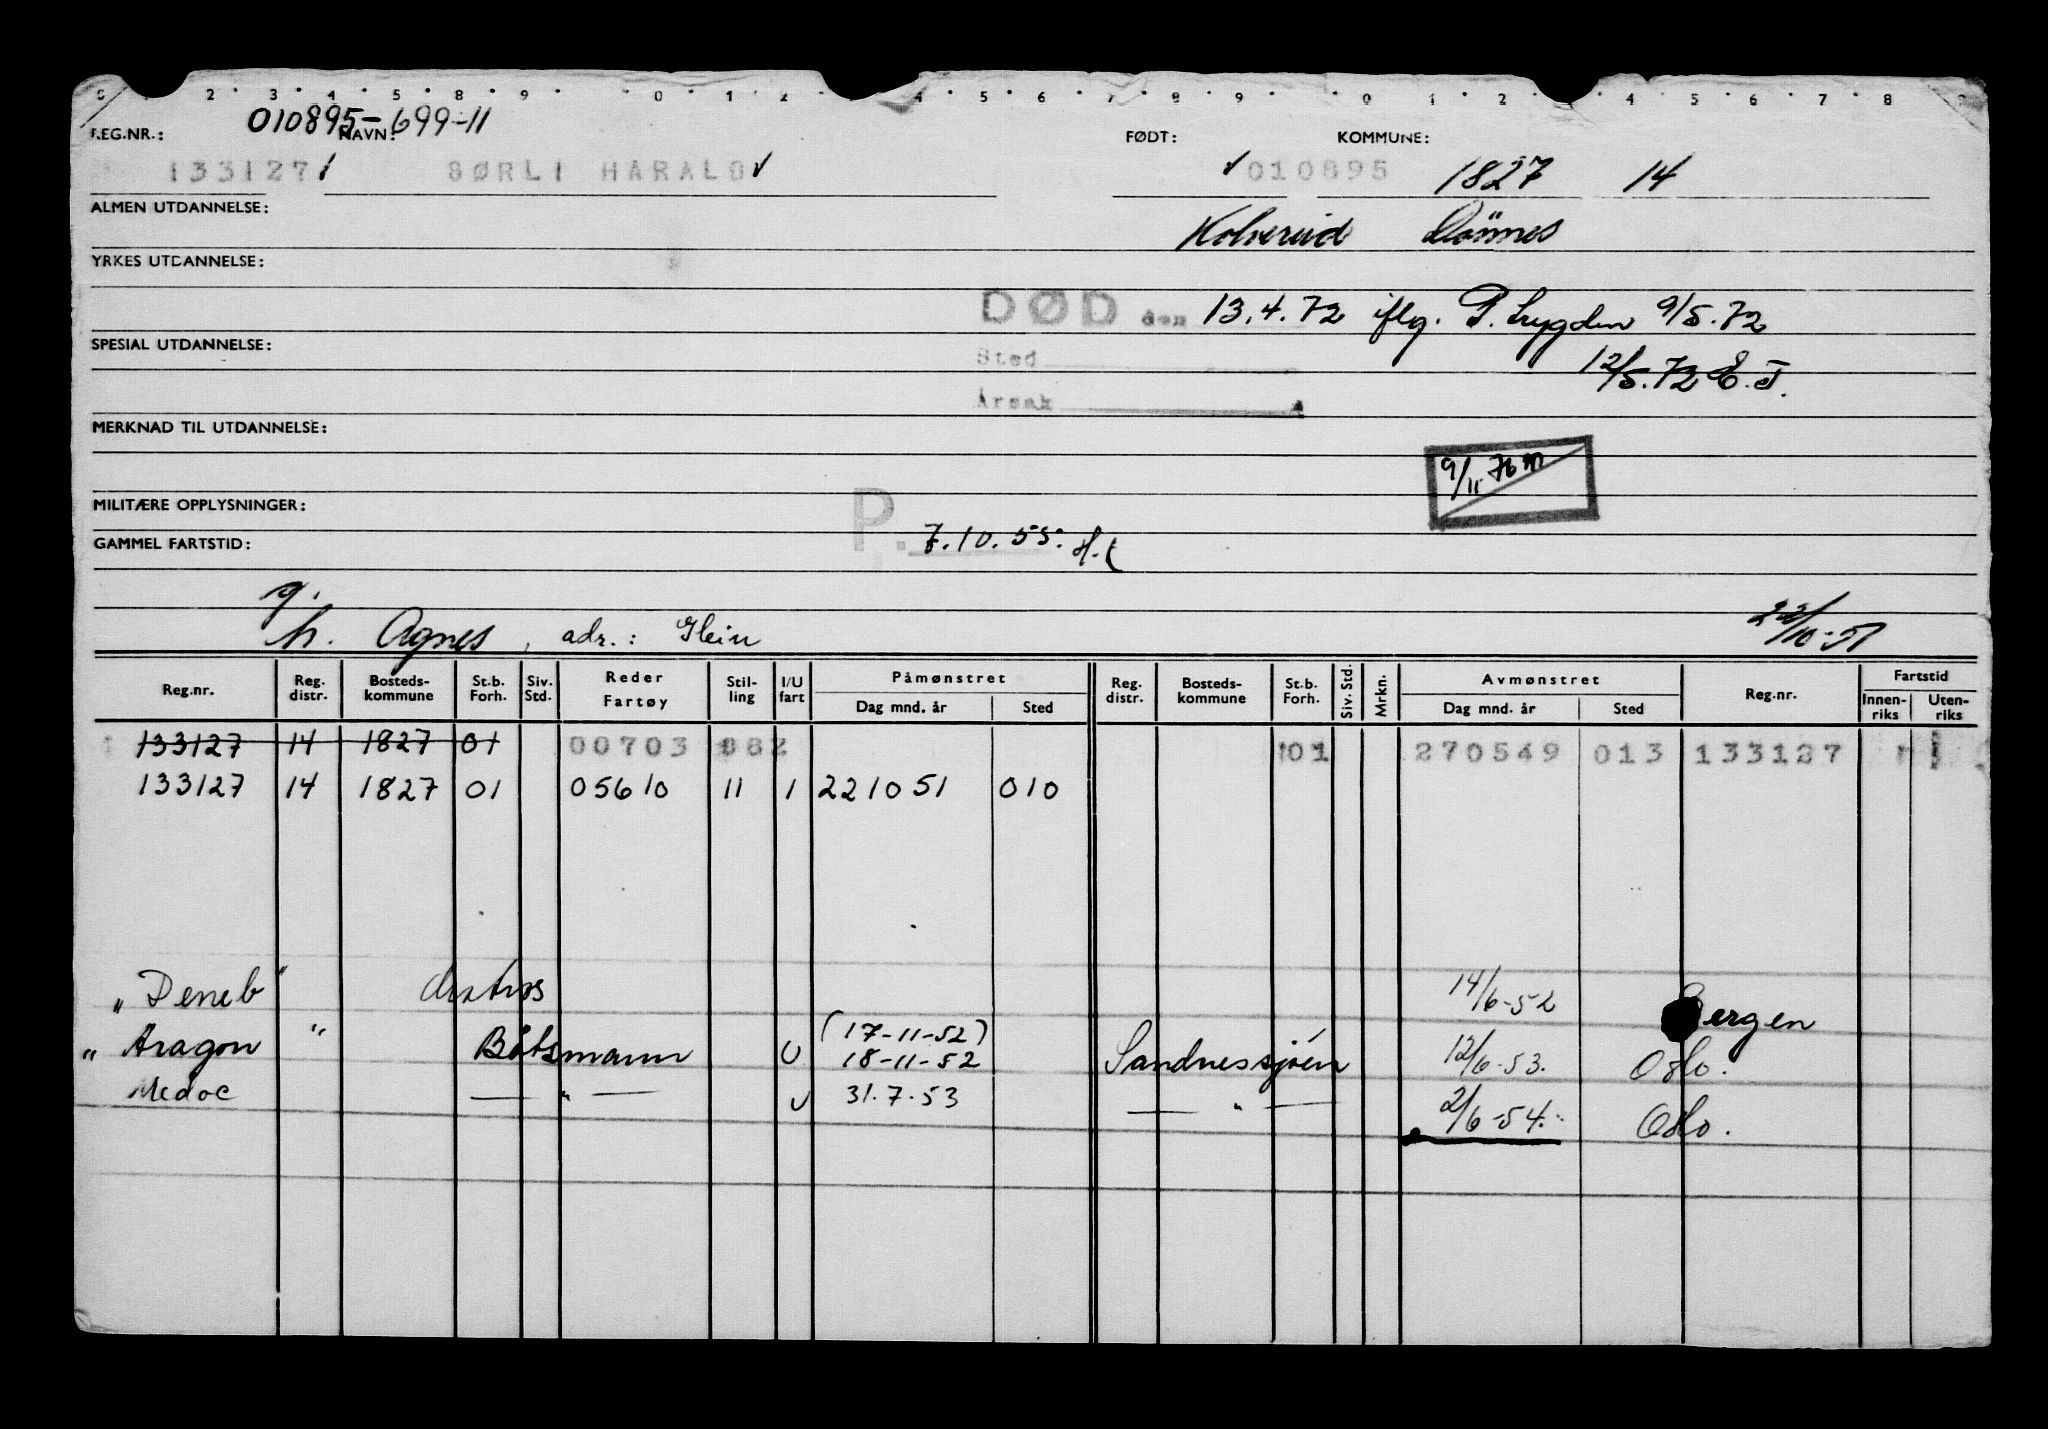 0 1 2 3 4 5 8 9 0 1 2 4 5 6 7 8 9 0 1 2 4 5 6 7 8
010895-699-11
REG.NR.: NAVN: FØDT: KOMMUNE:
133127 SØRLI HARALD 010895 1827 14
ALMEN UTDANNELSE: Kolvereid Dönnes
YRKES UTDANNELSE:
DØD den 13.4.72 iflg. P. trygden 9/5.72
SPESIAL UTDANNELSE: Sted 12/5.72
Årsak
MERKNAD TIL UTDANNELSE:
9/11 76 m
MILITÆRE OPPLYSNINGER:
P. 7.10.55.
GAMMEL FARTSTID:
g.
h. Agnes, adr.: Glein 22/10-51
Reg.nr. Reg. distr. Bosteds-kommune St.b. Forh. Siv. Std. Reder Fartøy Stil-ling I/U fart Påmønstret Dag mnd. år Sted Reg. distr. Bosteds-kommune St.b. Forh. Siv. Std. Mrkn. Avmønstret Dag mnd. år Sted Reg.nr. Fartstid Innen-riks Uten-riks
133127 14 1827 01 00703 082 01 270549 013 133127
133127 14 1827 01 05610 11 1 221051 010
"Deneb" 14/6-52 Bergen
"Aragon " Båtsmann U (17-11-52) 18-11-52 Sandnessjøen 12/6-53. Oslo.
Medoc — " — U 31.7.53 — " — 2/6-54. Oslo.